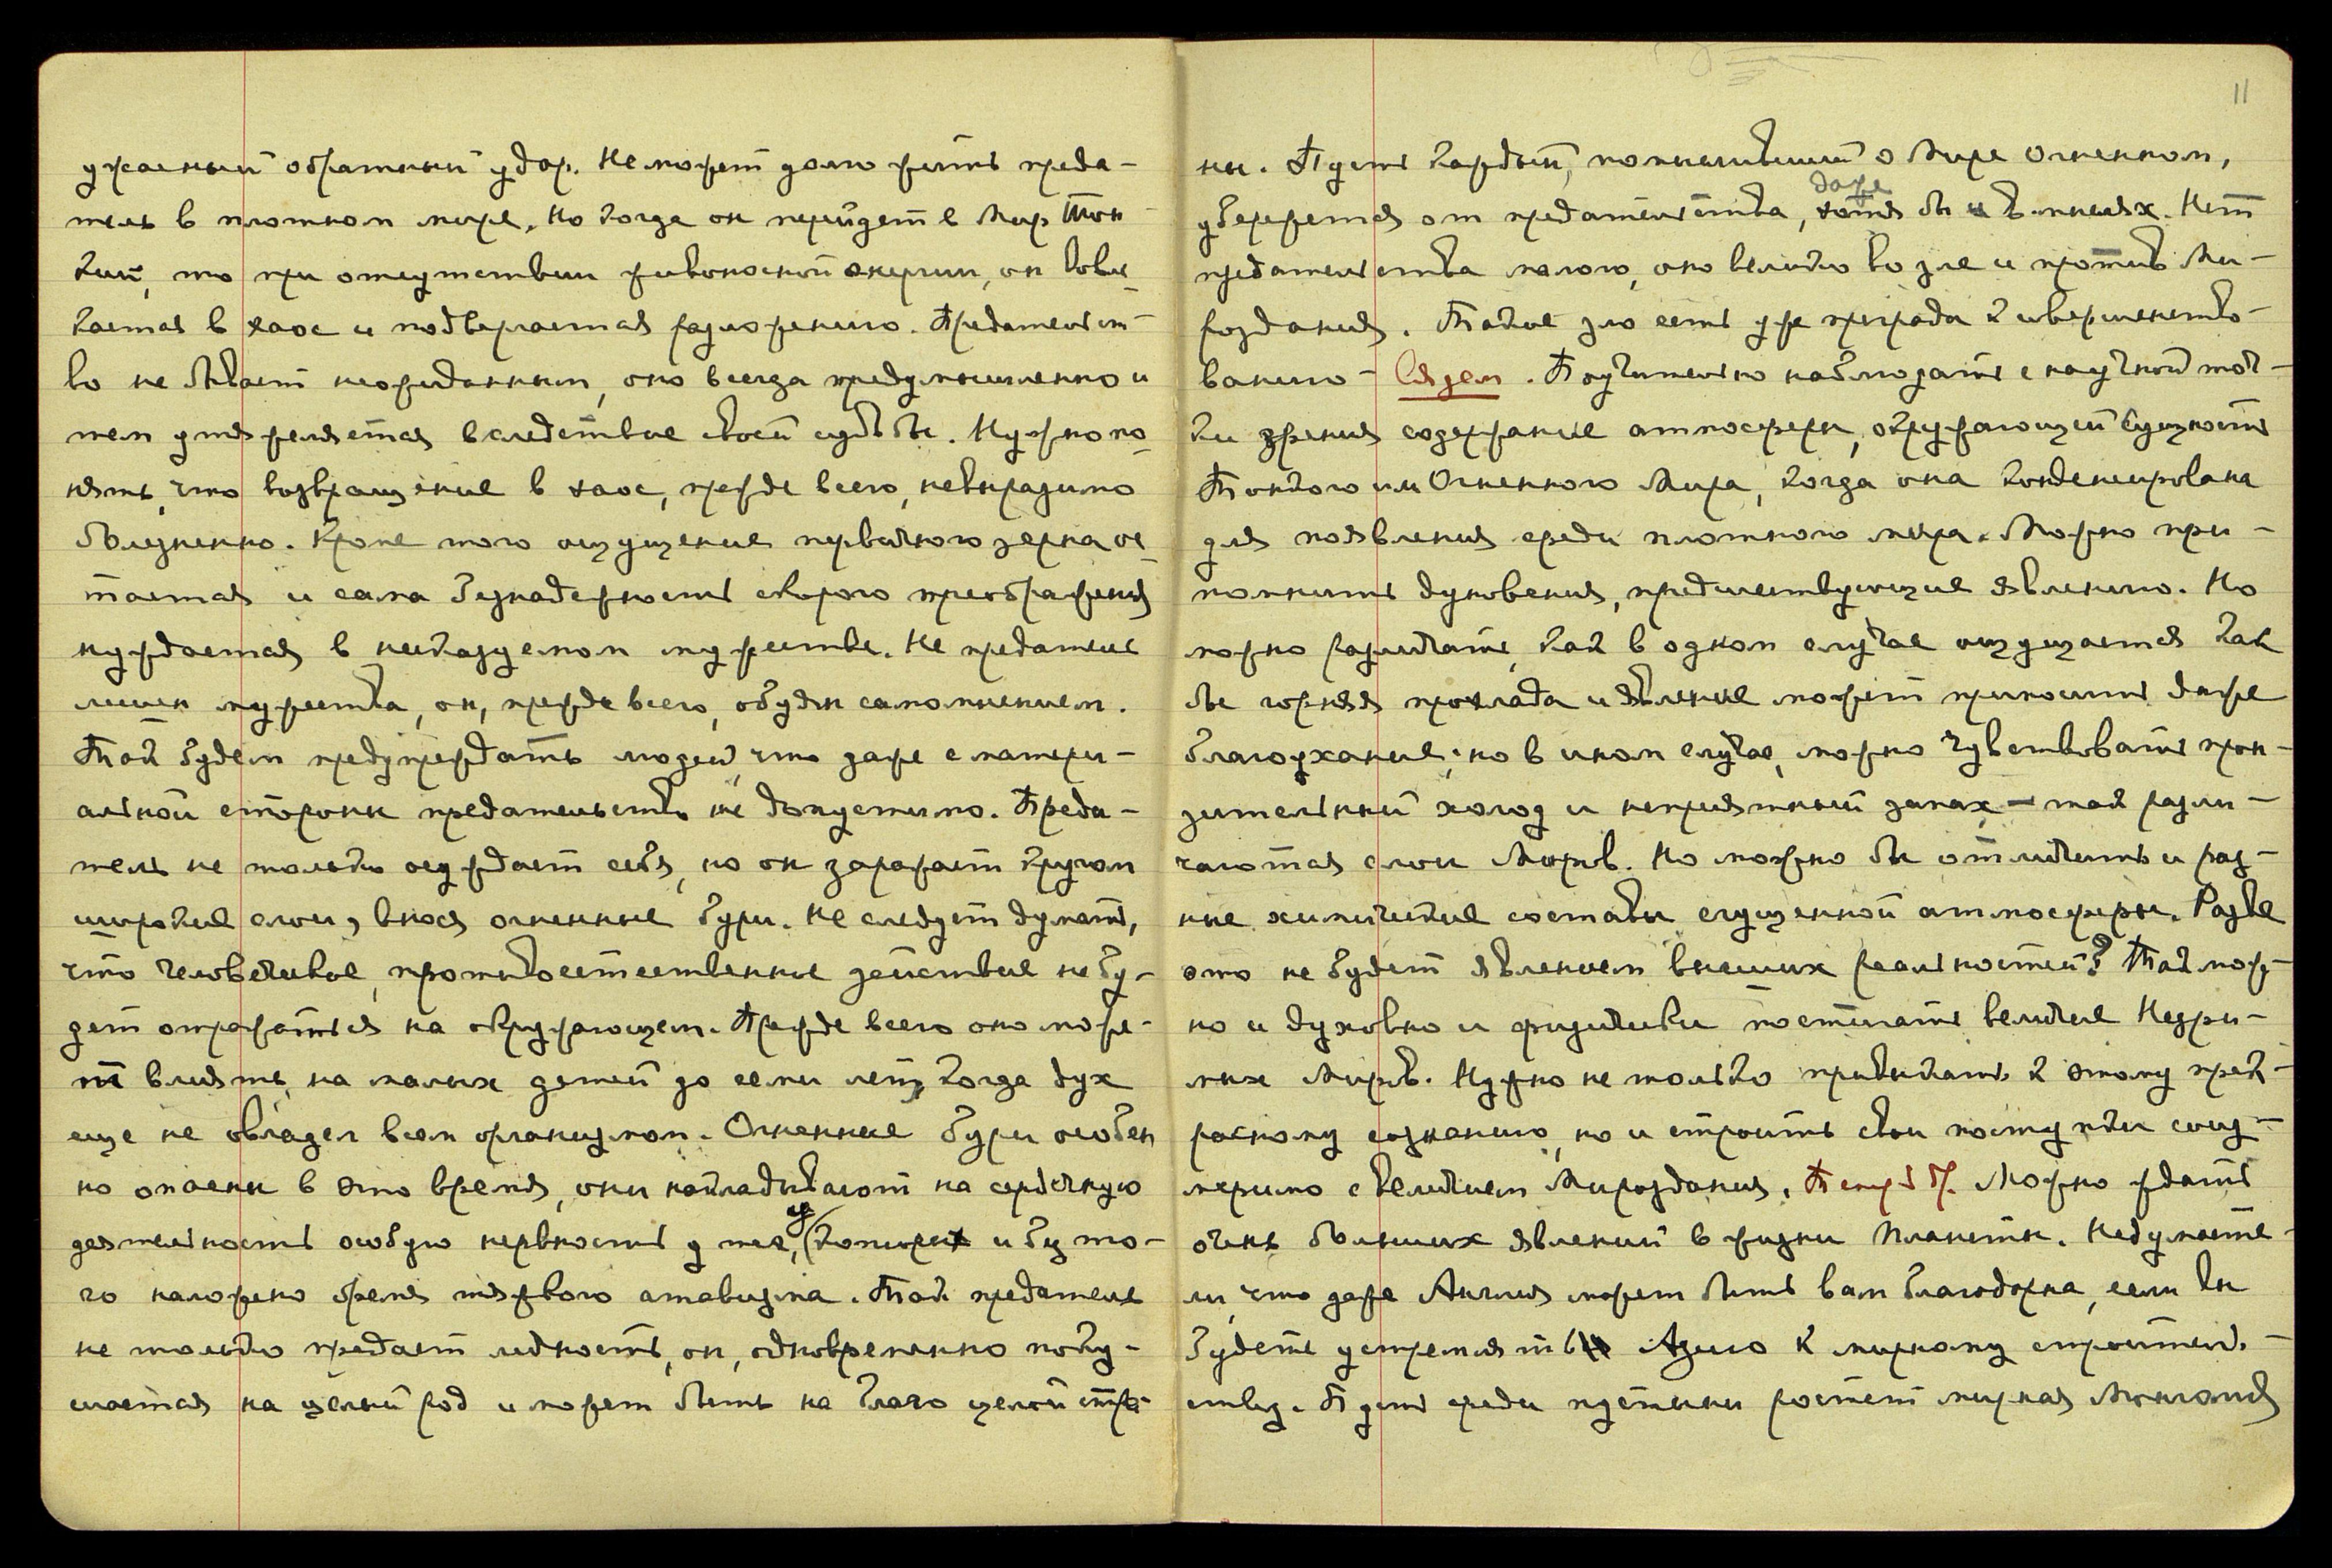 ужасный обратный удар. Не может долго жить преда-
тель в плотном мире. Но когда он перейдет в Мир Тон-
кий, то при отсутствии живоносной энергии, он вовле-
кается в хаос и подвергается разложению. Предательст-
во не бывает неожиданным, оно всегда предумышленно и
тем утяжеляется вследствие своей судьбы. Нужно по-
нять, что возвращение в хаос, прежде всего, невыразимо
болезненно. Кроме того ощущение первичного зерна ос-
тается и сама безнадежность скорого преображения
нуждается в несказуемом мужестве. Не предатель
лишен мужества, он, прежде всего, обуян самомнением.
Так будем предупреждать людей, что даже с матери-
альной стороны предательство не допустимо. Преда-
тель не только осуждает себя, но он заражает кругом
широкие слои, внося огненные бури. Не следует думать,
что человеческое, противоестественное действие не бу-
дет отражаться на окружающем. Прежде всего оно може-
т влиять на малых детей до семи лет, когда дух
еще не овладел всем организмом. Огненные бури особен
но опасны в это время, они накладывают на сердечную
деятельность особую нервность у тех, у которых и без то-
го наложено бремя тяжкого атавизма. Так предатель
не только предает личность, он, одновременно поку-
шается на целый род и может быть на благо целой стра-
11
ны. Пусть каждый, помысливший о Мире Огненном,
даже
убережется от предательства, хотя бы и в мыслях. Нет
предательства малого, оно велико во зле и против Ми-
роздания. Такое зло есть уже преграда к совершенство-
ванию - Сядем. Поучительно наблюдать с научной точ-
ки зрения содержание атмосферы, окружающей Сущность
Тонкого или Огненного Мира, когда она конденсирована
для появления среди плотного мира. Можно при-
помнить дуновения, предшествующие явлению. Но
можно различать, как в одном случае ощущается как
бы горняя прохлада и явление может приносить даже
благоухание; но в ином случае, можно чувствовать прон-
зительный холод и неприятный запах - так разли-
чаются слои Миров. Но можно бы отличить и раз-
ные химические составы сгущенной атмосферы. Разве
это не будет явлением внешних реальностей? Так мож-
но и духовно и физически постигать величие Незри-
мых Миров. Нужно не только привыкать к этому прек-
расному сознанию, но и строить свои поступки соиз-
меримо с величием Мироздания. Можно ждать
очень больших явлений в жизни планеты. Недумаете-
ли, что даже Англия может быть вам благодарна, если вы
будете устремлять Азию к мирному строитель-
ству. Пусть среди пустыни растет мирная Монголия